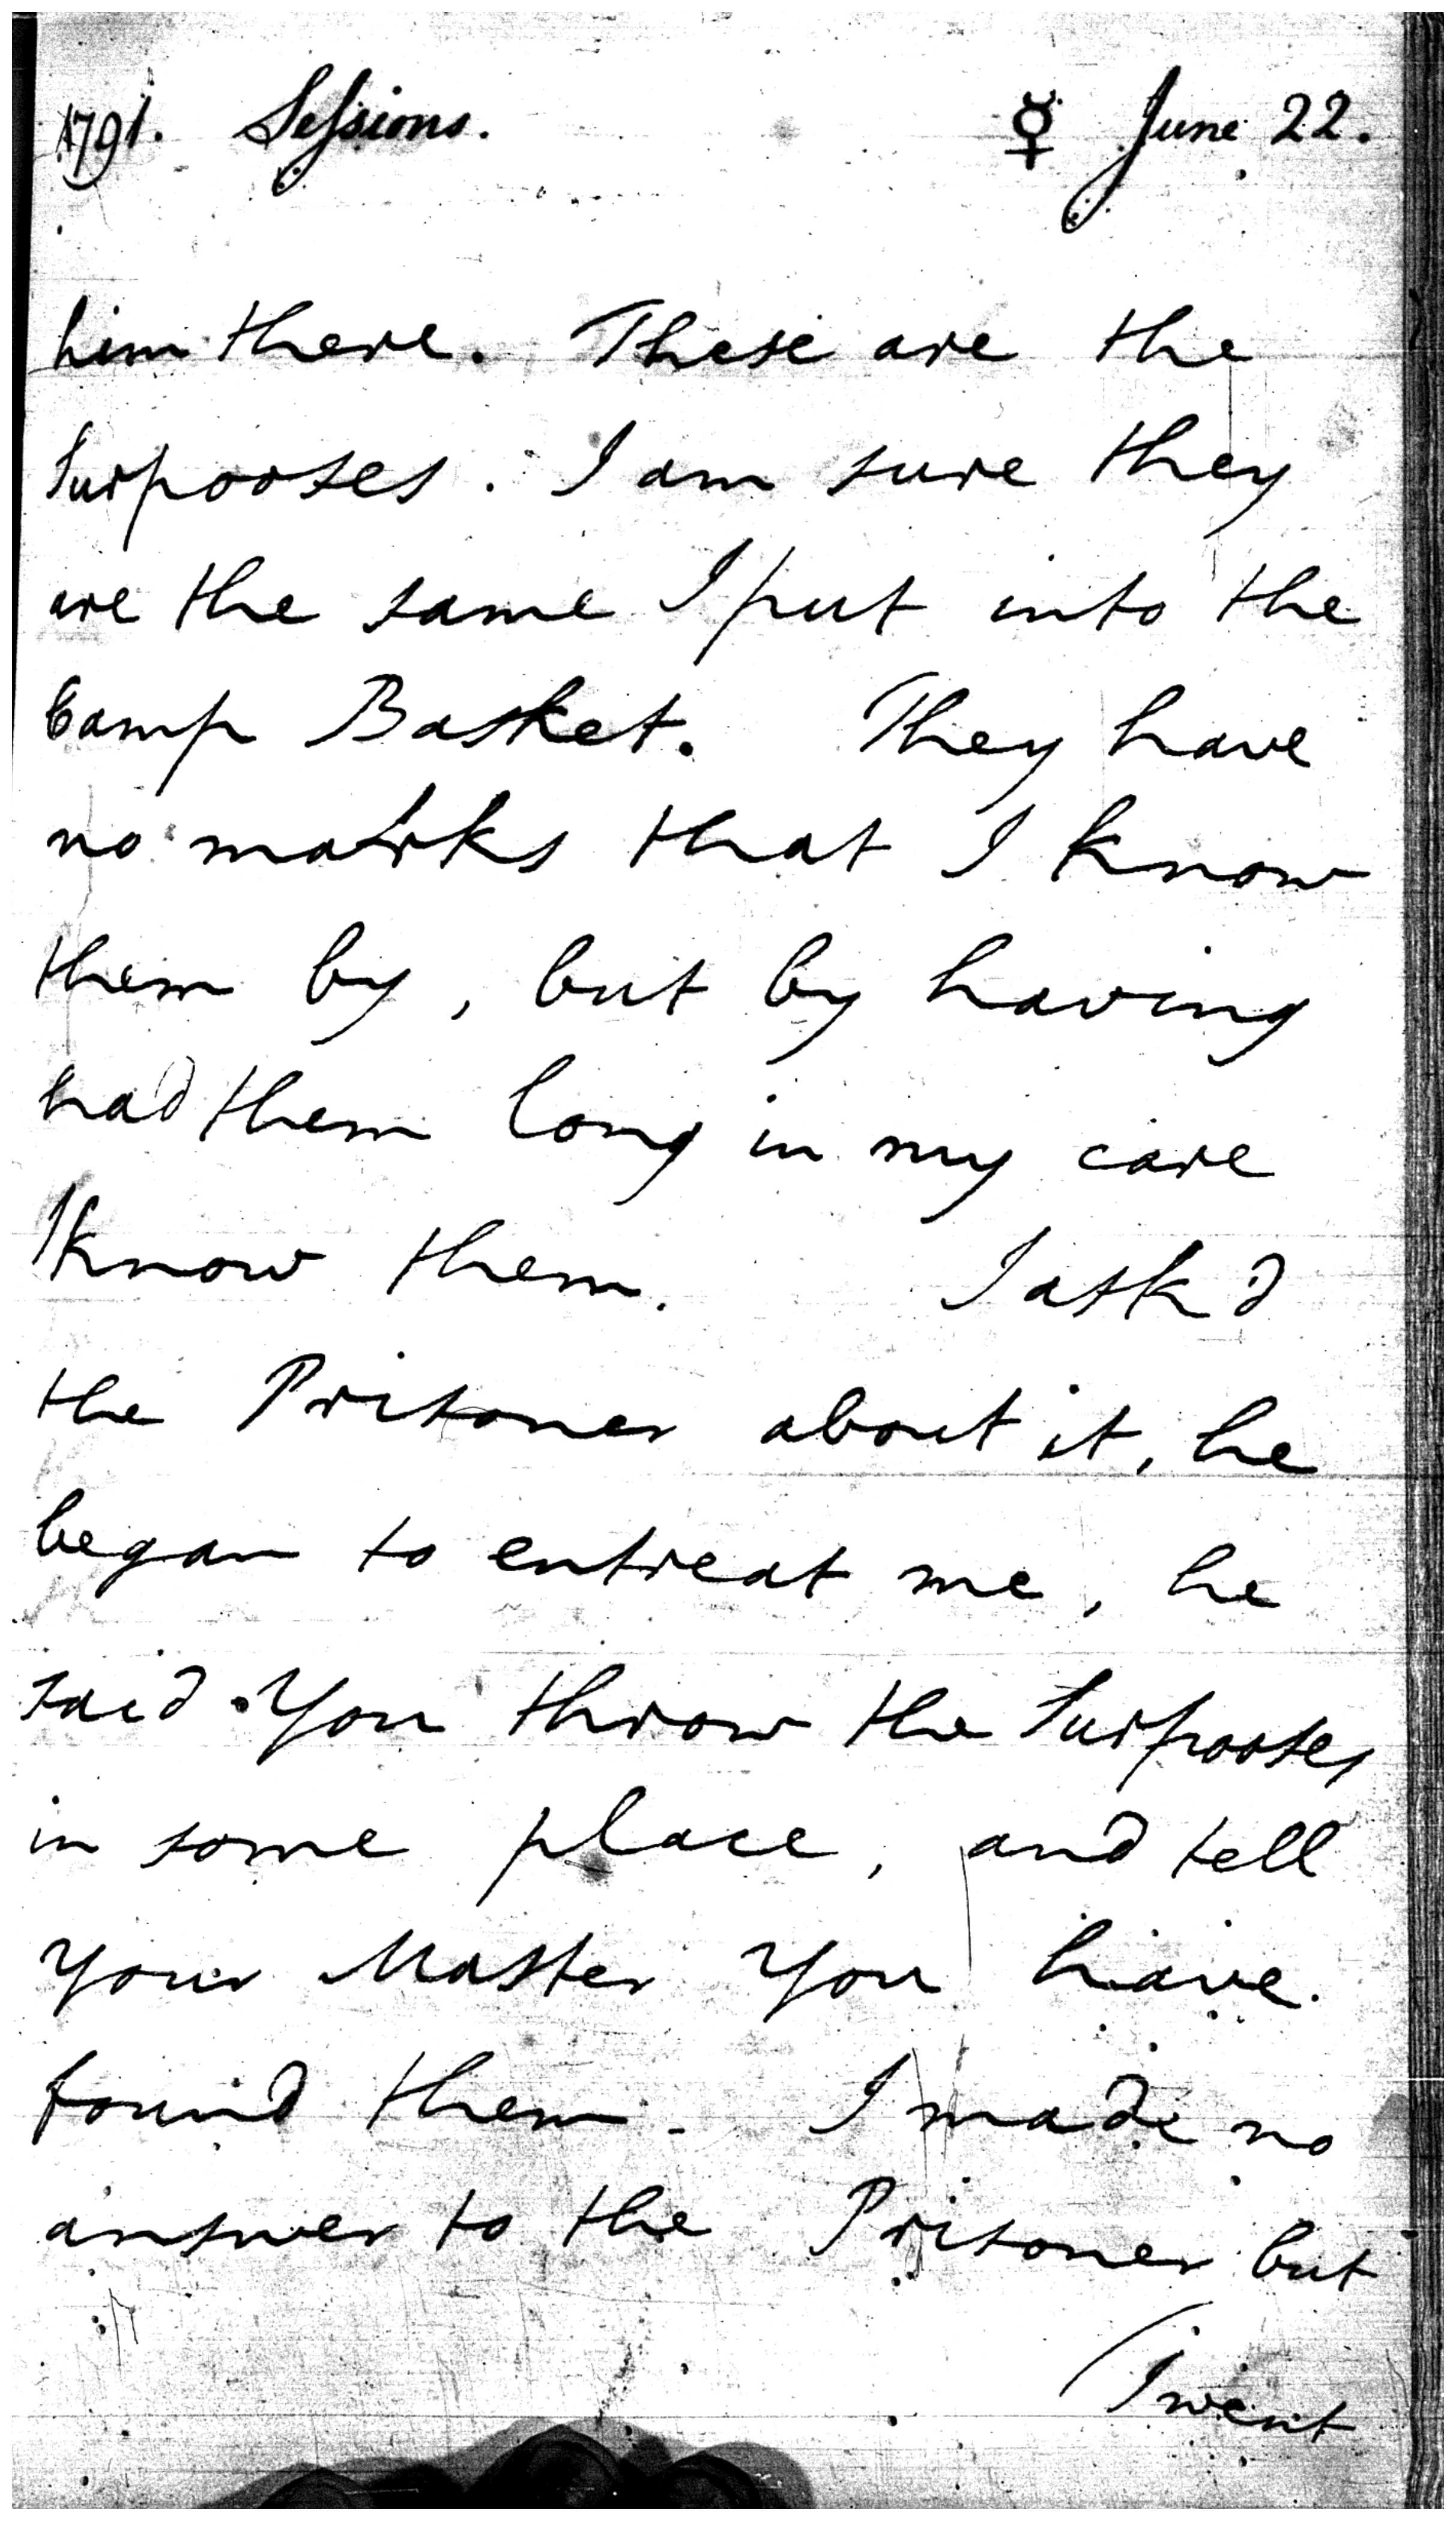 1791. Sessions. ☿ June 22.
him there. These are the
Surpooses. I am sure they
are the same I put into the
Camp Basket. They have
no marks that I know
them by, but by having
had them long in my care
I know them. I ask'd
the Prisoner about it, he
began to entreat me, he
said You throw the Surpooses
in some place, and tell
your Master You have
found them. I made no
answer to the Prisoner but
I went